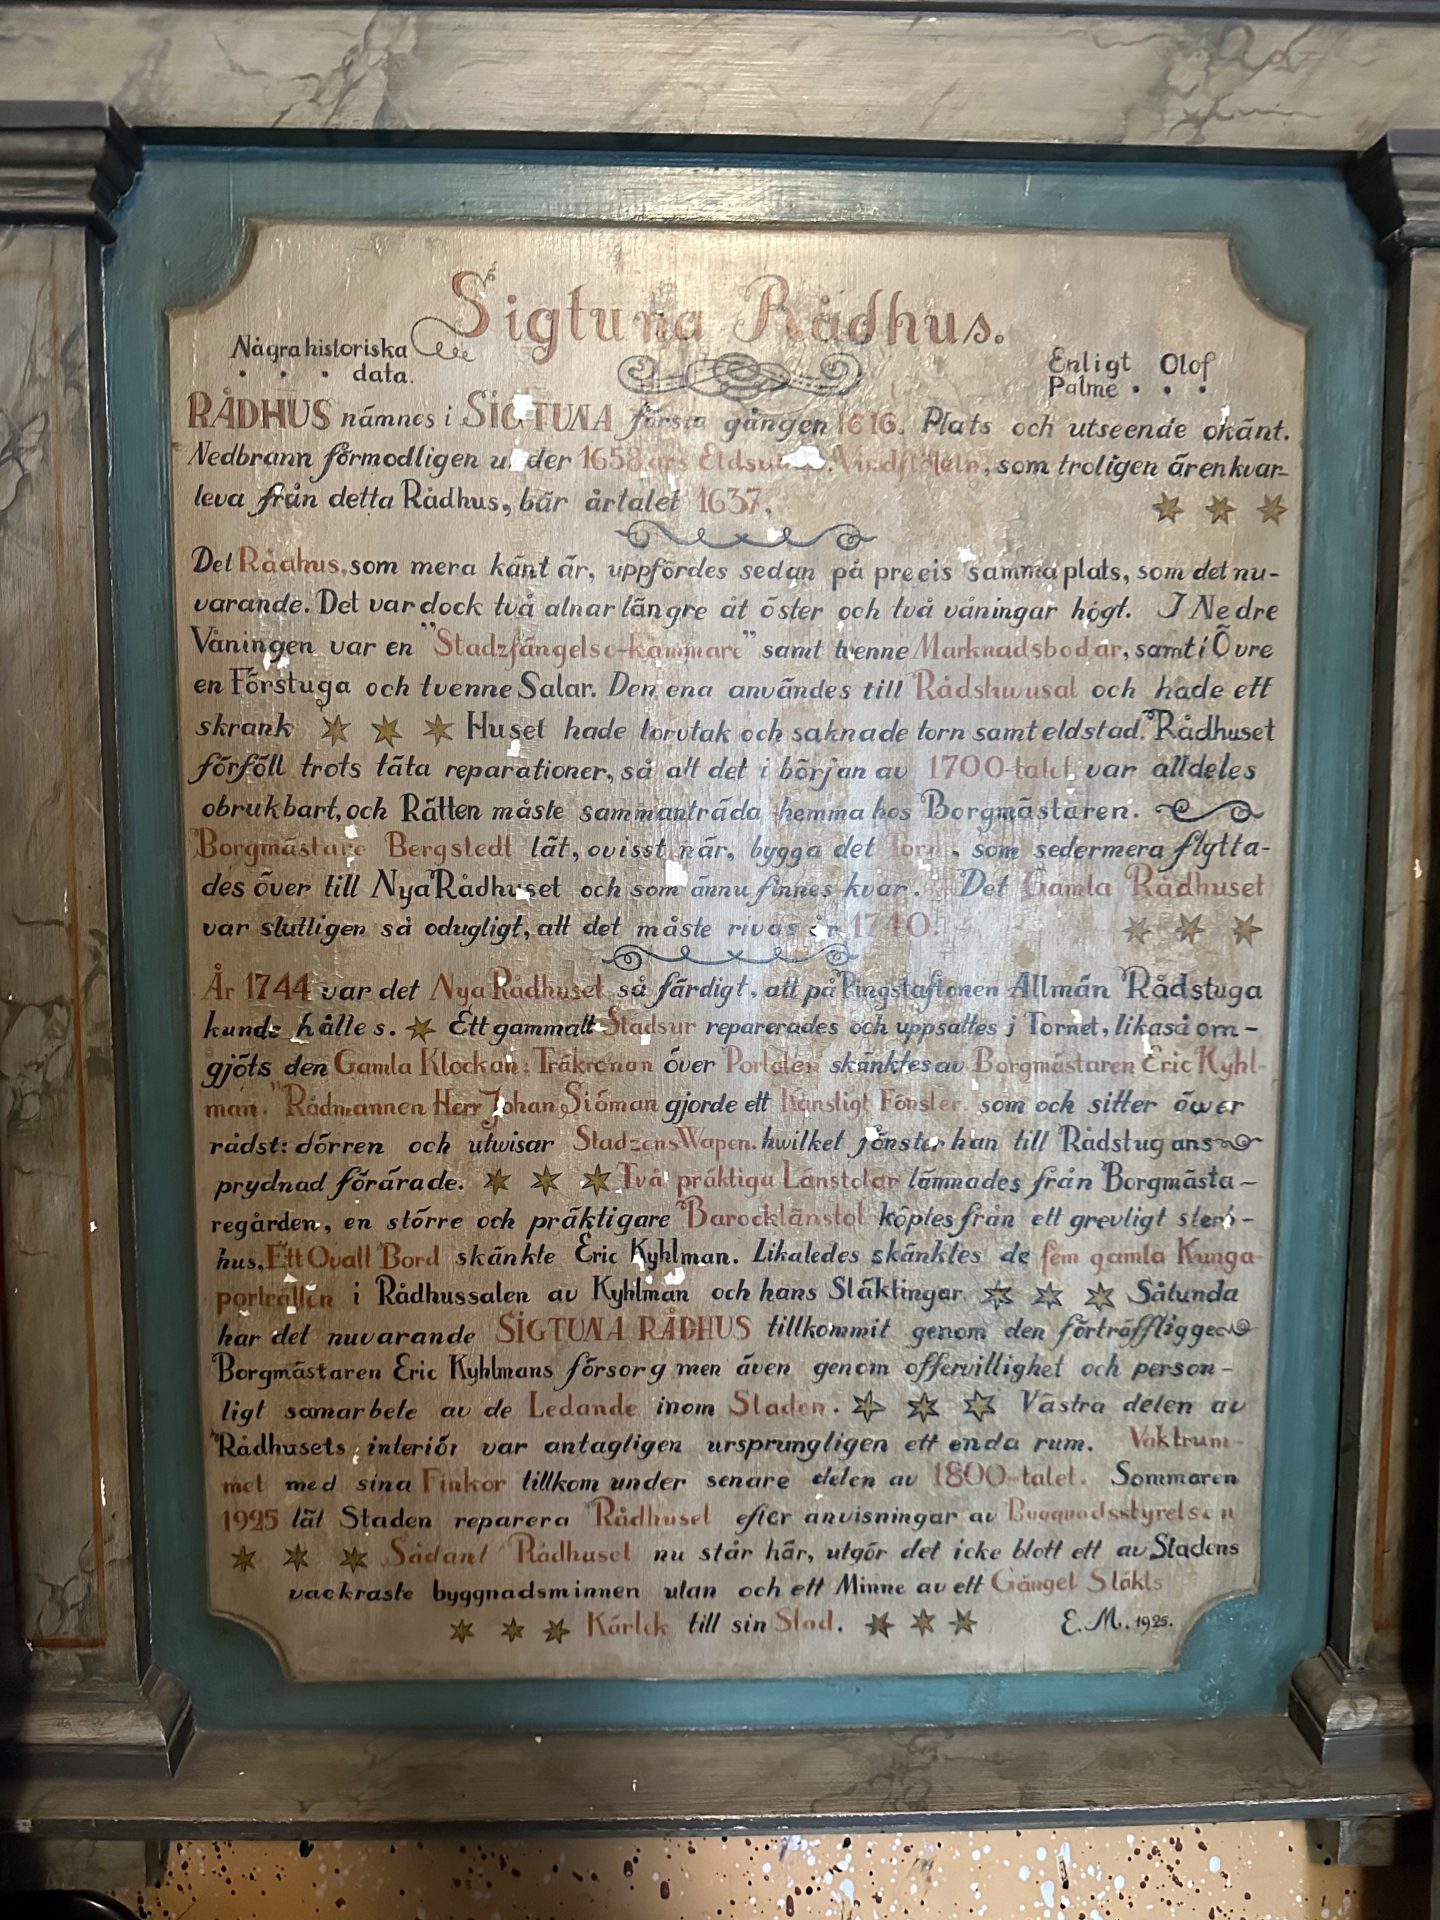 Sigtuna Rådhus.
Några historiska
data.
Enligt Olof
Palme
RÅDHUS nämnes i SIGTUNA första gången 1616. Plats och utseende okänt.
Nedbrann förmodligen under 1658 års Vindflöjeln, som troligen är enkvar-
leva från detta Rådhus, bär årtalet 1637.
Det Rådhus, som mera känt är, uppfördes sedan på precis samma plats, som det nu-
varande. Det var dock två alnar längre åt öster och två våningar högt. I Nedre
Våningen var en "Stadzfängelse-kammare" samt tvenne Marknadsbodar, samt i Övre
en Förstuga och tvenne Salar. Den ena användes till Rådshuusal och hade ett
skrank Huset hade torvtak och saknade torn samt eldstad. Rådhuset
förföll trots täta reparationer, så att det i början av 1700-talet var alldeles
obrukbart, och Rätten måste sammanträda hemma hos Borgmästaren.
Borgmästare Bergstedt lät, ovisst när, bygga det Torn, som sedermera flytta-
des över till Nya Rådhuset och som ännu finnes kvar. Det Gamla Rådhuset
var slutligen så odugligt, att det måste rivas år 1740.
År 1744 var det Nya Rådhuset så färdigt, att på Pingstaftonen Allmän Rådstuga
kunde hålles. Ett gammalt Stadsur reparerades och uppsattes i Tornet, likaså om-
gjöts den Gamla Klockan. Träkronan över Portalen skänktes av Borgmästaren Eric Kyhl-
man. "Rådmannen Herr Johan Siöman gjorde ett Konstigt Fönster som och sitter öwer
rådst: dörren och utwisar StadzensWapen. hwilket fönster han till Rådstugans
prydnad förärade. Två präktiga Länstolar lämnades från Borgmästa-
regården, en större och präktigare Barocklänstol köptes från ett grevligt sterb-
hus. Ett Ovalt Bord skänkte Eric Kyhlman. Likaledes skänktes de fem gamla Kunga-
porträtten i Rådhussalen av Kyhlman och hans Släktingar. Sålunda
har det nuvarande SIGTUNA RÅDHUS tillkommit genom den förträffligge
Borgmästaren Eric Kyhlmans försorg men även genom offervillighet och person-
ligt samarbete av de Ledande inom Staden. Västra delen av
Rådhusets interiör var antagligen ursprungligen ett enda rum. Vaktrum-
met med sina Finkor tillkom under senare delen av 1800-talet. Sommaren
1925 lät Staden reparera Rådhuset efter anvisningar av Byggnadsstyrelsen
Sådant Rådhuset nu står här, utgör det icke blott ett av Stadens
vackraste byggnadsminnen utan och ett Minne av ett Gånget Släkts
Kärlek till sin Stad.
E. M. 1925.